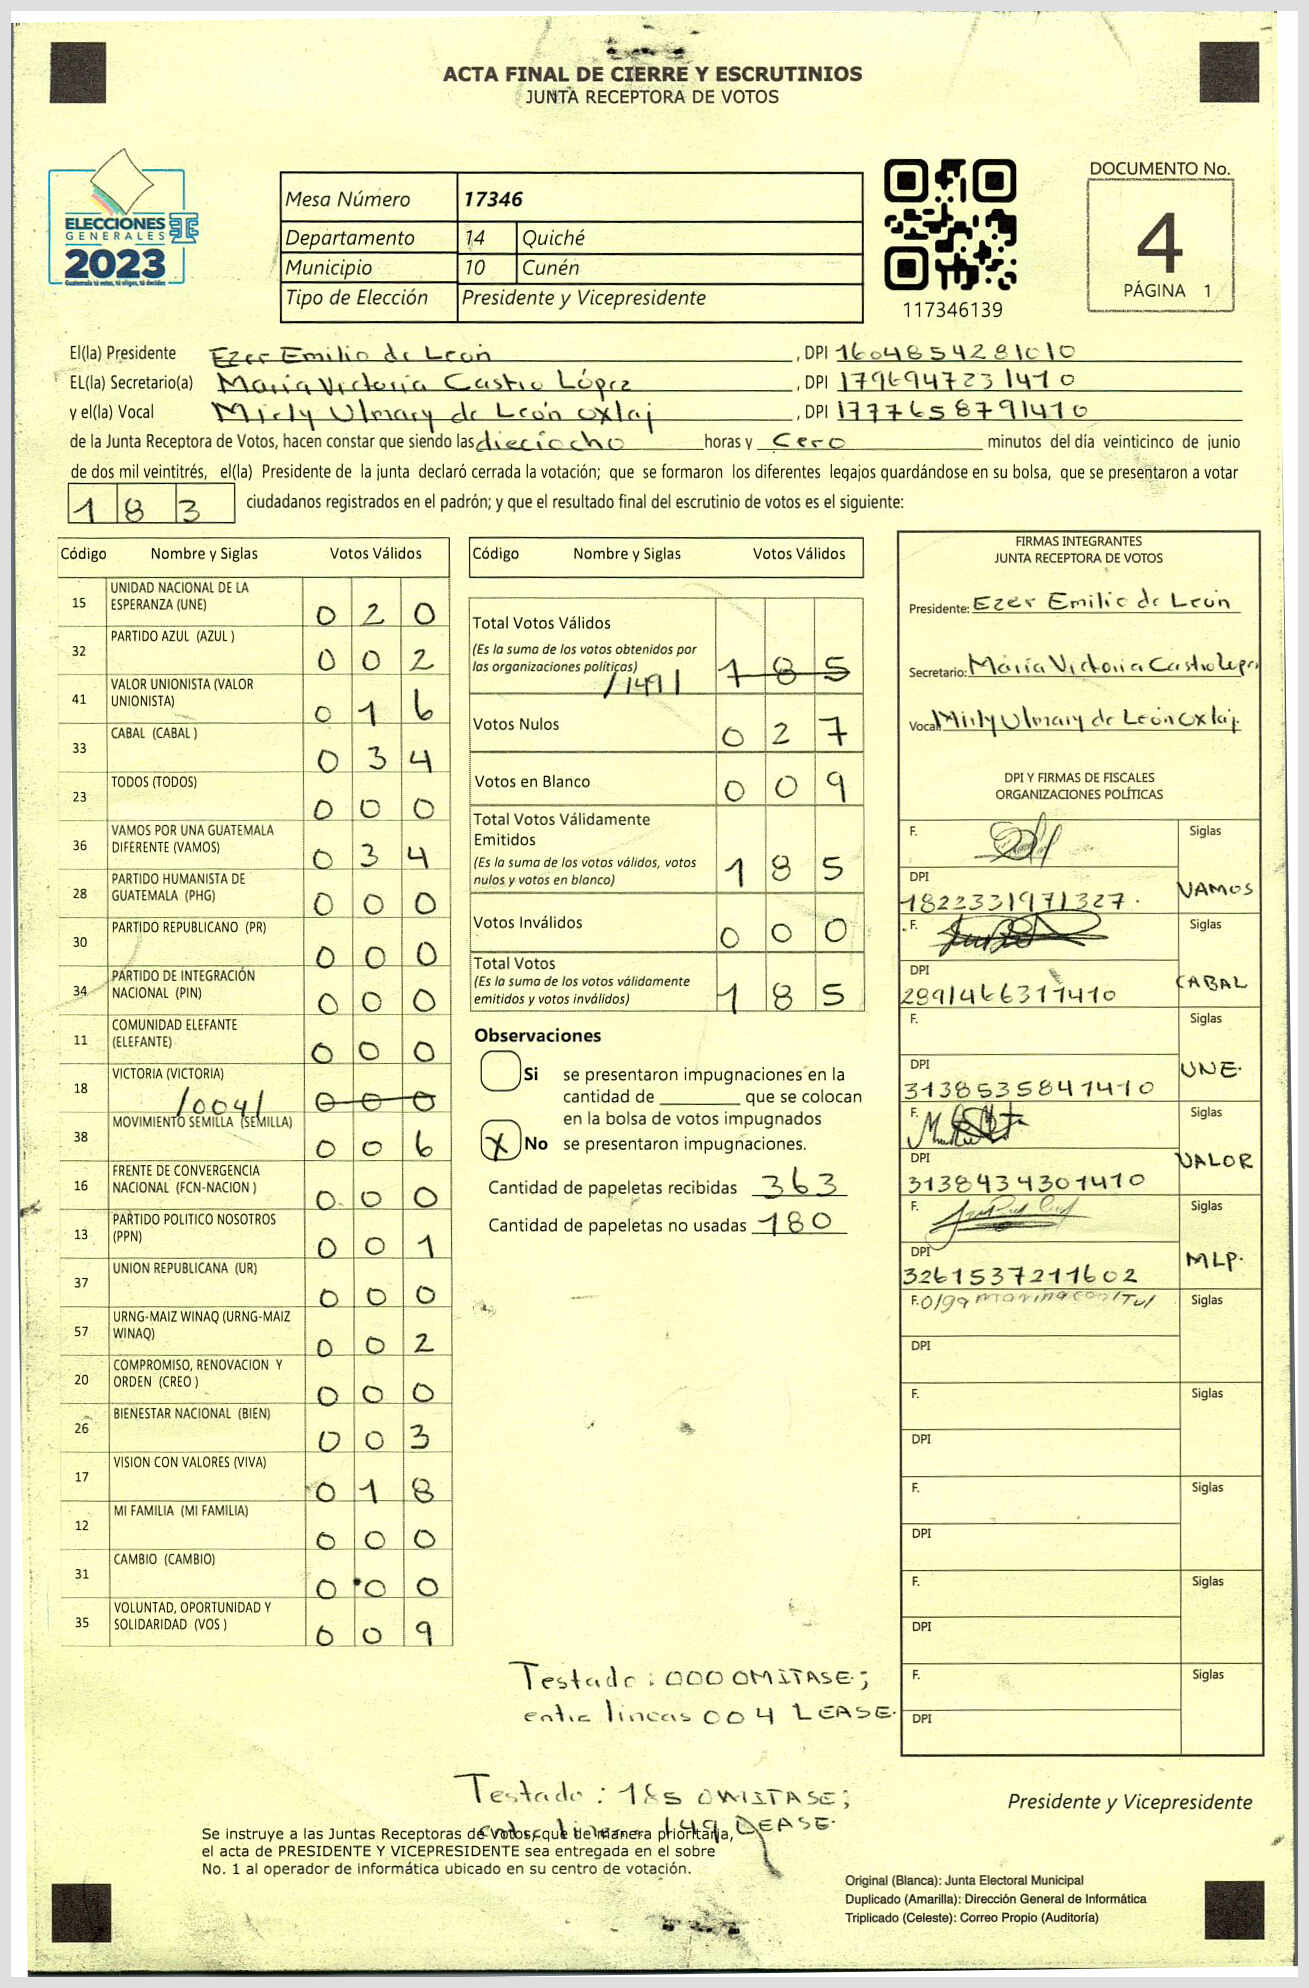 ACTA FINAL DE CIERRE Y ESCRUTINIOS
JUNTA RECEPTORA DE VOTOS
ELECCIONES
GENERALES
2023
Guatemala tú votas, tú eliges, tú decides
Mesa Número 17346
Departamento 14 Quiché
Municipio 10 Cunén
Tipo de Elección Presidente y Vicepresidente
117346139
DOCUMENTO No.
4
PÁGINA 1
El(la) Presidente Ezer Emilio de León, DPI 1604854281010
EL(la) Secretario(a) María Victoria Castro López, DPI 1796947231410
y el(la) Vocal Mirly Ulmary de León Oxlaj, DPI 1777658791410
de la Junta Receptora de Votos, hacen constar que siendo las dieciocho horas y Cero minutos del día veinticinco de junio
de dos mil veintitrés, el(la) Presidente de la junta declaró cerrada la votación; que se formaron los diferentes legajos guardándose en su bolsa, que se presentaron a votar
183 ciudadanos registrados en el padrón; y que el resultado final del escrutinio de votos es el siguiente:
Código Nombre y Siglas Votos Válidos
15 UNIDAD NACIONAL DE LA ESPERANZA (UNE) 020
32 PARTIDO AZUL (AZUL ) 002
41 VALOR UNIONISTA (VALOR UNIONISTA) 016
33 CABAL (CABAL ) 034
23 TODOS (TODOS) 000
36 VAMOS POR UNA GUATEMALA DIFERENTE (VAMOS) 034
28 PARTIDO HUMANISTA DE GUATEMALA (PHG) 000
30 PARTIDO REPUBLICANO (PR) 000
34 PARTIDO DE INTEGRACIÓN NACIONAL (PIN) 000
11 COMUNIDAD ELEFANTE (ELEFANTE) 000
18 VICTORIA (VICTORIA) /004/ 000
38 MOVIMIENTO SEMILLA (SEMILLA) 006
16 FRENTE DE CONVERGENCIA NACIONAL (FCN-NACION ) 000
13 PARTIDO POLITICO NOSOTROS (PPN) 001
37 UNION REPUBLICANA (UR) 000
57 URNG-MAIZ WINAQ (URNG-MAIZ WINAQ) 002
20 COMPROMISO, RENOVACION Y ORDEN (CREO ) 000
26 BIENESTAR NACIONAL (BIEN) 003
17 VISION CON VALORES (VIVA) 018
12 MI FAMILIA (MI FAMILIA) 000
31 CAMBIO (CAMBIO) 000
35 VOLUNTAD, OPORTUNIDAD Y SOLIDARIDAD (VOS ) 009
Código Nombre y Siglas Votos Válidos
Total Votos Válidos
(Es la suma de los votos obtenidos por
las organizaciones políticas) /149/ 185
Votos Nulos 027
Votos en Blanco 009
Total Votos Válidamente
Emitidos
(Es la suma de los votos válidos, votos
nulos y votos en blanco) 185
Votos Inválidos 000
Total Votos
(Es la suma de los votos válidamente
emitidos y votos inválidos) 185
Observaciones
Si se presentaron impugnaciones en la
cantidad de ________ que se colocan
en la bolsa de votos impugnados
X No se presentaron impugnaciones.
Cantidad de papeletas recibidas 363
Cantidad de papeletas no usadas 180
Testado: 000 OMITASE;
entre lineas 004 LEASE.
Testado: 185 OMITASE;
entre lineas 149 LEASE.
FIRMAS INTEGRANTES
JUNTA RECEPTORA DE VOTOS
Presidente: Ezer Emilio de León
Secretario: María Victoria Castro Lópe
Vocal Mirly Ulmary de León Oxlaj
DPI Y FIRMAS DE FISCALES
ORGANIZACIONES POLÍTICAS
F. Siglas
DPI 1822331971327. VAMOS
F. Siglas
DPI 2891466311410 CABAL
F. Siglas
DPI 3138535841410 UNE.
F. Siglas
DPI 3138434301410 VALOR
F. Siglas
DPI 3261537211602 MLP.
F. Olga marina Siglas
DPI
F. Siglas
DPI
F. Siglas
DPI
F. Siglas
DPI
F. Siglas
DPI
Presidente y Vicepresidente
Se instruye a las Juntas Receptoras de Votos, que de manera prioritaria,
el acta de PRESIDENTE Y VICEPRESIDENTE sea entregada en el sobre
No. 1 al operador de informática ubicado en su centro de votación.
Original (Blanca): Junta Electoral Municipal
Duplicado (Amarilla): Dirección General de Informática
Triplicado (Celeste): Correo Propio (Auditoría)